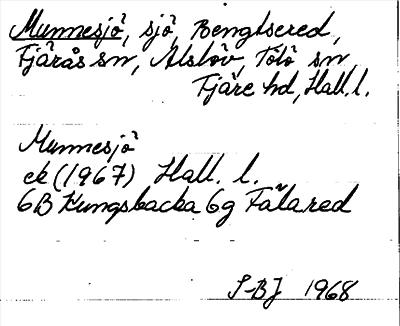 Munnesjö, sjö, Bengtsered,
Fjärås sn, Alslöv, Tölö sn,
Fjäre hd, Hall. l.
Munnesjö
ek (1967) Hall. l.
6B Kungsbacka 6g Fålared
S-BJ 1968